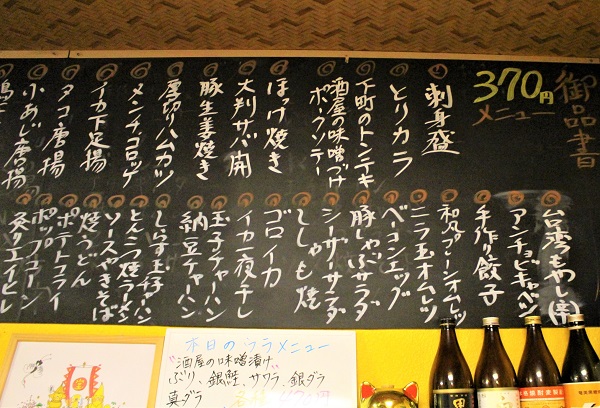 御品書
370円
メニュー
刺身盛
とりカラ
下町のトンテキ
酒屋の味噌づけ
ほっけ焼き
大判サバ開
豚生姜焼き
厚切りハムカツ
メンチコロッケ
イカ下足揚
タコ唐揚
小あじ唐揚
台湾もやし(辛)
アンチョビキャベツ
手作り餃子
和風プレーンオムレツ
ニラ玉オムレツ
ベーコンエッグ
豚しゃぶサラダ
シーザーサラダ
ししゃも焼
ゴロイカ
イカ一夜干し
玉子チャーハン
納豆チャーハン
しらす玉子チャーハン
とんこつ焼ラーメン
ソースやきそば
焼うどん
ポテトフライ
ポップコーン
炙りエイヒレ
本日のウラメニュー
"酒屋の味噌漬け"
ぶり、銀鮭、サワラ、銀ダラ
真ダラ